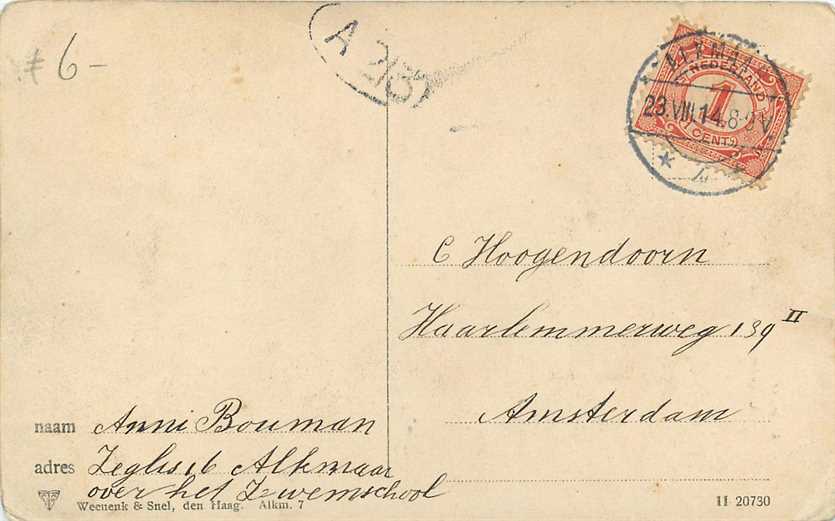 # 6 -
A 213
ALKMAAR
NEDERLAND
1
23.VIII.14.8-9V
CENT
C Hoogendoorn
Haarlemmerweg 139 II
Amsterdam
naam Anni Bouman
adres Zeglis 16 Alkmaar
over het Zwemschool
Weenenk & Snel, den Haag. Alkm. 7
11 20730